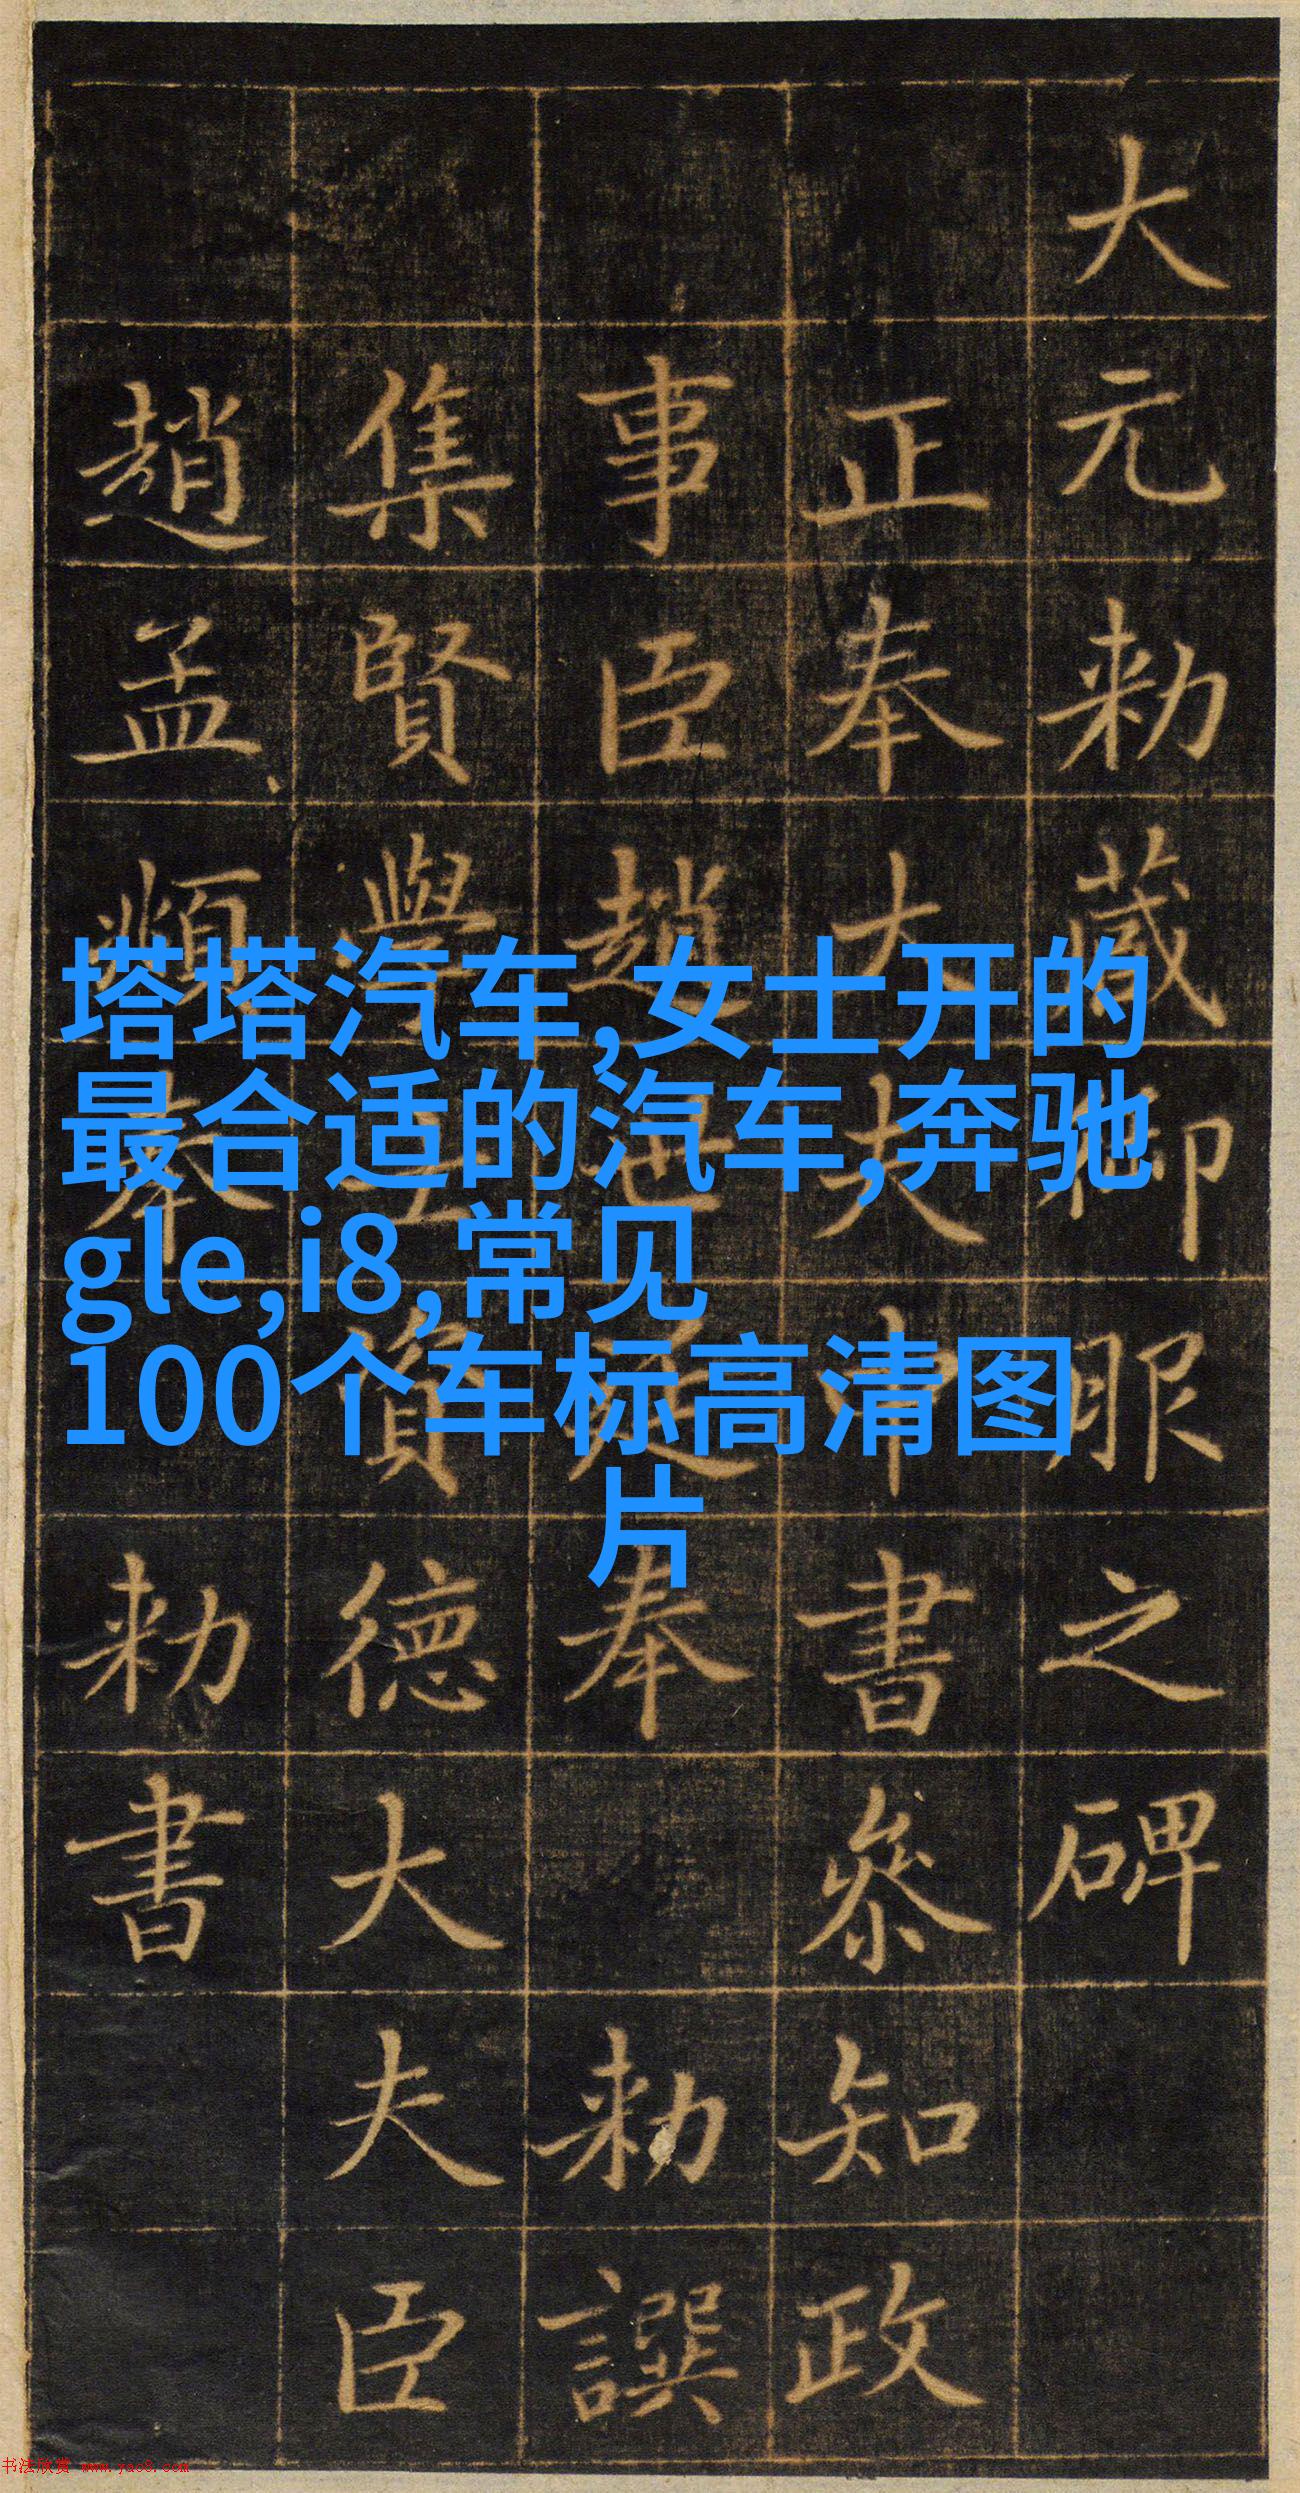 大元勅藏御服之碑
正奉大夫中書參知政
事臣趙世延奉 勅譔
集賢學士資德大夫臣
趙孟頫奉 勅書
塔塔汽车,女士开的
最合适的汽车,奔驰
gle,i8,常见
100个车标高清图
片
书法欣赏 www.yac8.com